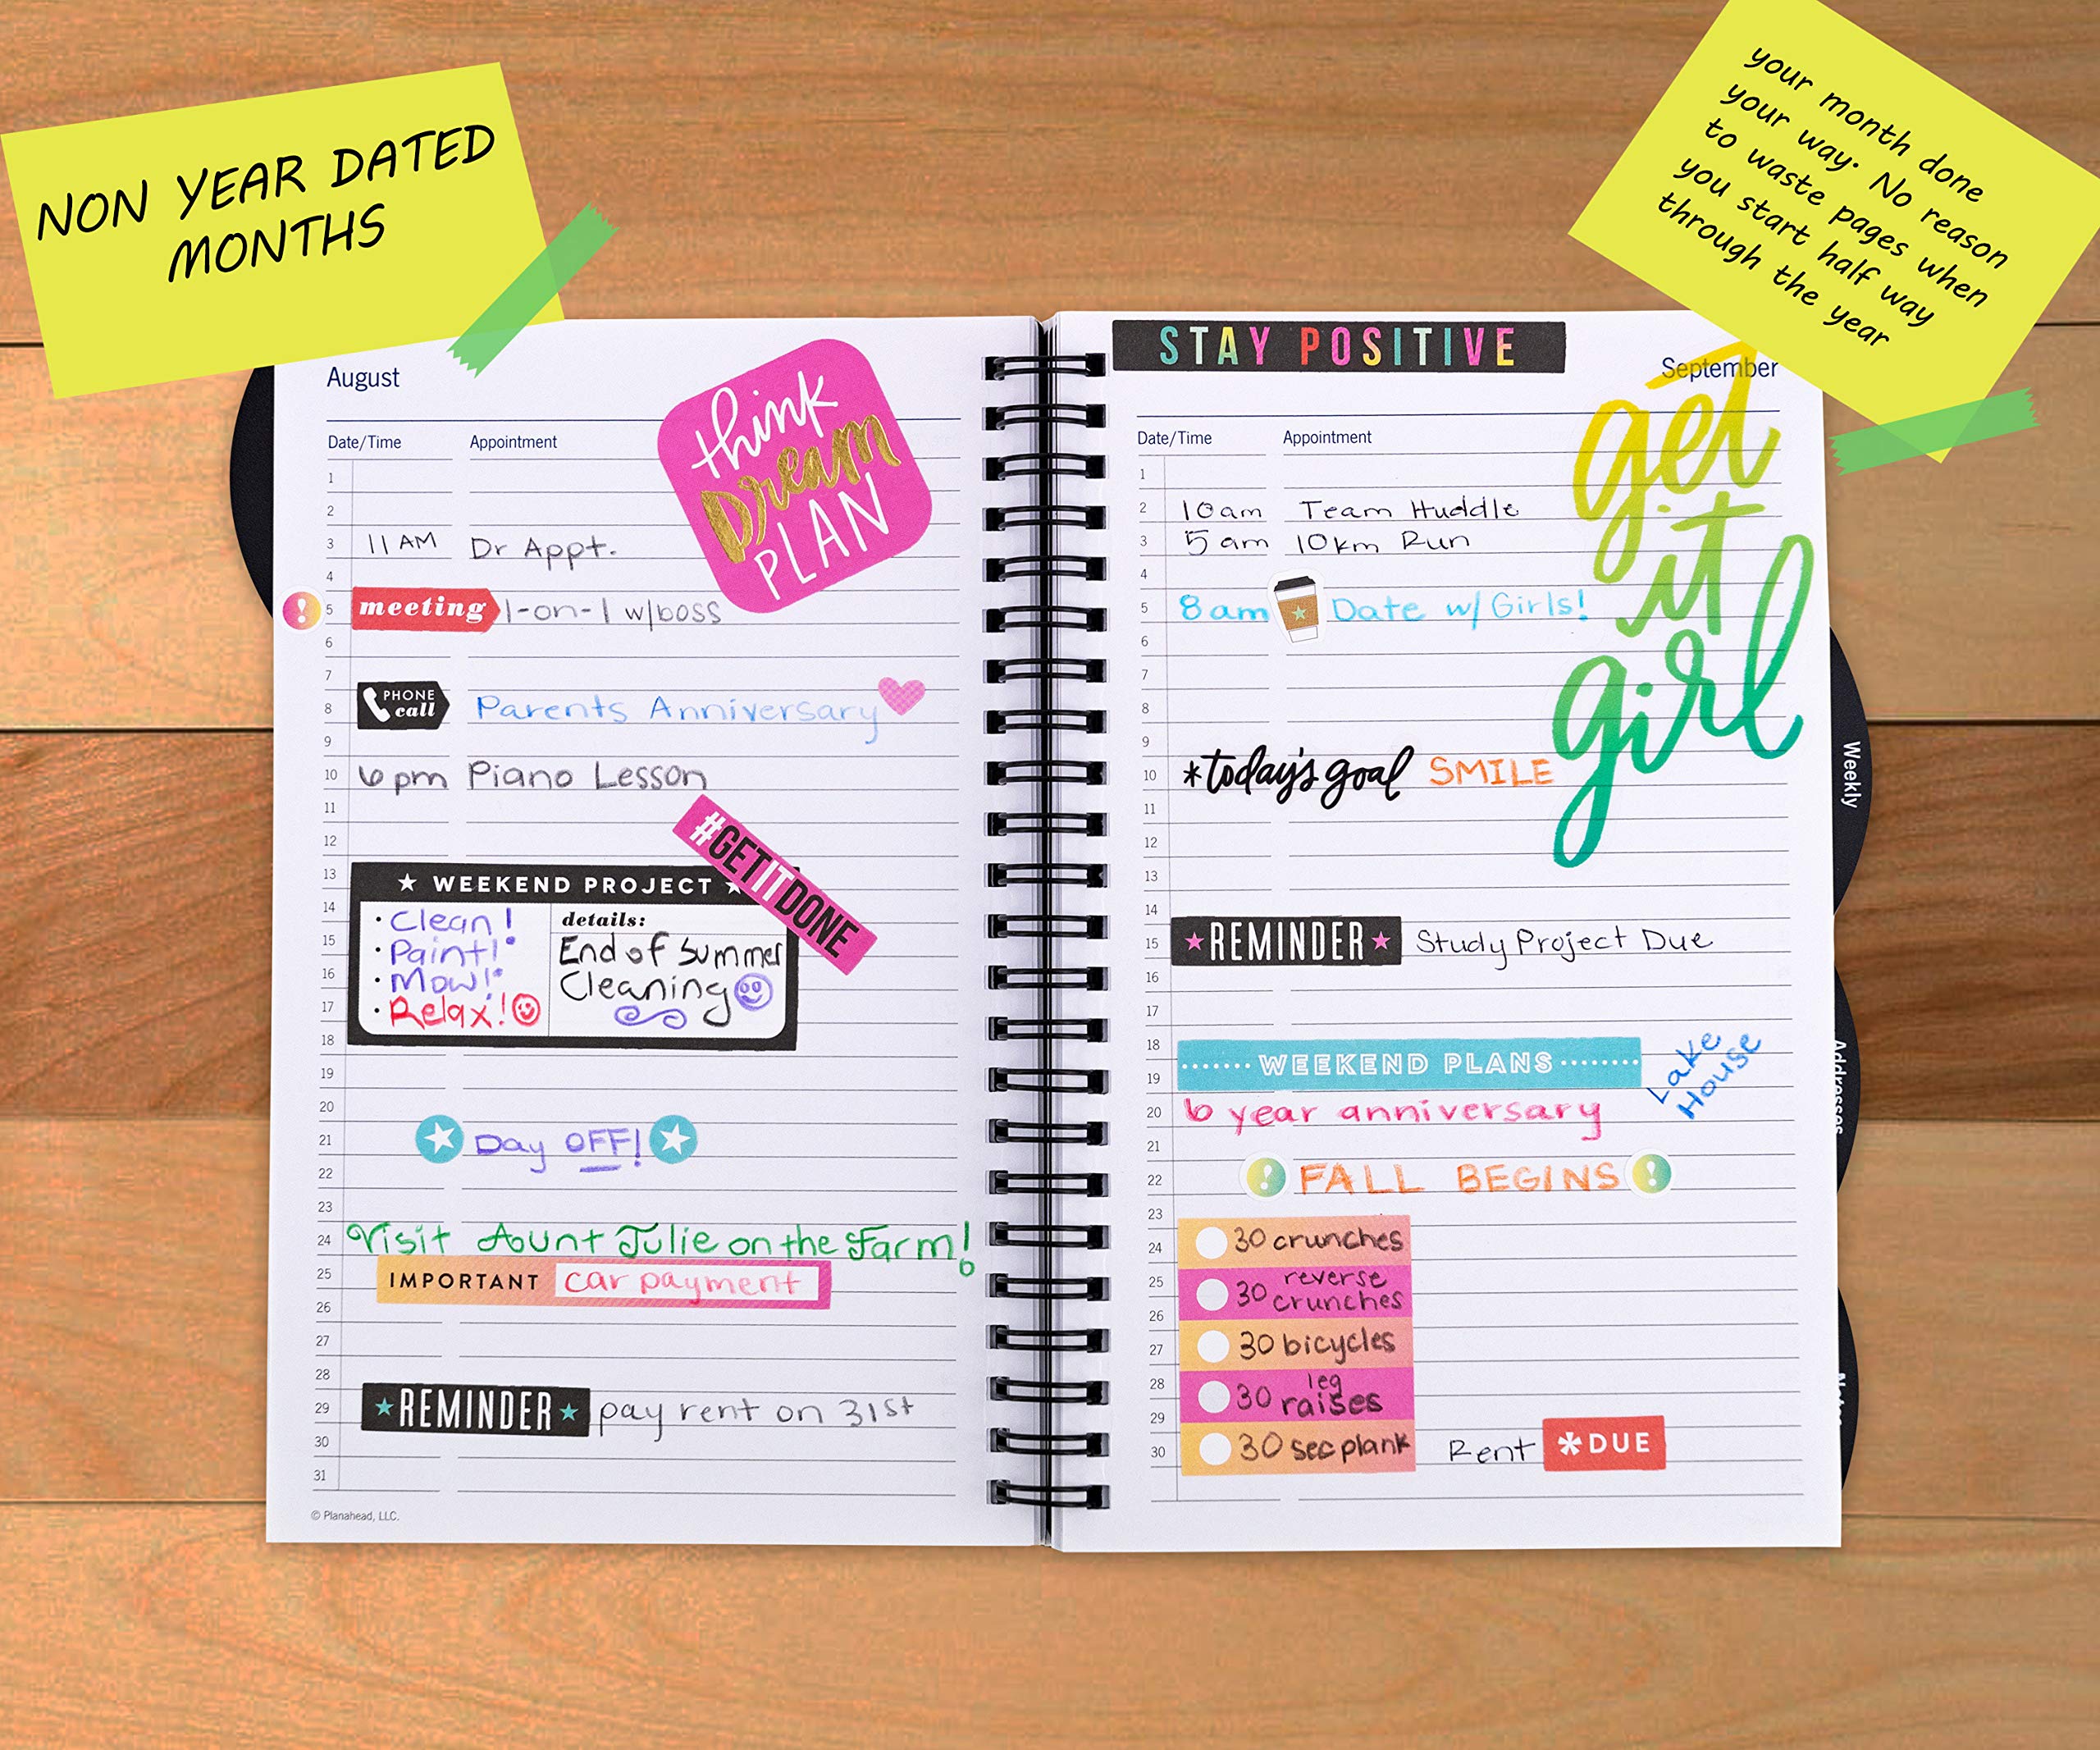 NON YEAR DATED
MONTHS
your month done
your way. No reason
to waste pages when
you start half way
through the year
August
think
Dream
PLAN
Date/Time Appointment
1
2
3 11 AM Dr Appt.
4
5 ! meeting 1-on-1 w/boss
6
7
8 PHONE call Parents Anniversary
9
10 6 pm Piano Lesson
11
12
#GETITDONE
13 WEEKEND PROJECT
14 · Clean! details:
15 · Paint! End of Summer
16 · Mow! Cleaning
17 · Relax!
18
19
20
21 Day OFF!
22
23
24 Visit Aunt Julie on the Farm!
25 IMPORTANT car payment
26
27
28
29 REMINDER pay rent on 31st
30
31
© Planahead, LLC.
STAY POSITIVE
September
get
it
girl
Date/Time Appointment
1
2 10am Team Huddle
3 5am 10km Run
4
5 8am Date w/ Girls!
6
7
8
9
10 *today's goal SMILE
11
12
13
14
15 REMINDER Study Project Due
16
17
18 WEEKEND PLANS Lake
19 House
20 6 year anniversary
21
22 ! FALL BEGINS !
23
24 30 crunches
25 30 reverse
26 crunches
27 30 bicycles
28 30 leg
29 raises
30 30 sec plank Rent *DUE
Weekly
Addresses